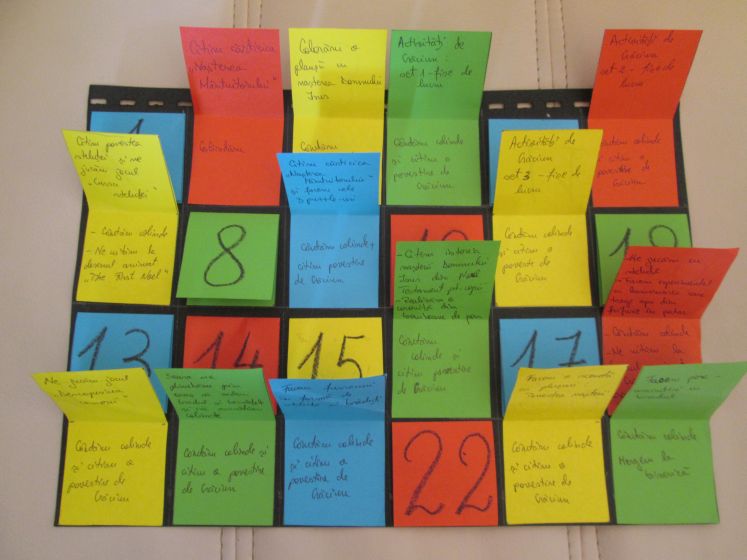 1
Citim cărticica
„Nașterea
Mântuitorului"
Colindăm
Colorăm o
planșă cu
nașterea Domnului
Iisus
Colindăm
Activități de
Crăciun :
set 1 - fișe de
lucru
Cântăm colinde
și citim o
povestire de
Crăciun
Activități de
Crăciun
set 2 - fișe de
lucru
Cântăm colinde
și citim o
povestire de
Crăciun
Citim povestea
steluței și ne
jucăm jocul
steluței"
- Cântăm colinde
- Ne uităm la
desenul animat
"The First Noel"
8
Citim cărticica
„Nașterea
Mântuitorului"
și facem cele
3 puzzle-uri
Cântăm colinde +
citim povestire
de Crăciun
10
Activități de
Crăciun
set 3 - fișe de
lucru
Cântăm colinde
și citim o
poveste de
Crăciun
12
13
14
15
- Citim istoria
nașterii Domnului
Iisus din Noul
Testament pt. copii
- Realizăm o
din
Cântăm
colinde și
citim povestire
de Crăciun
17
- Ne jucăm cu
steluțe
- Facem experimentul
- Cântăm colinde
- Ne uităm la
Ne jucăm jocul
Cântăm colinde
și citim o
povestire de
Crăciun
Seara ne
plimbăm prin
oraș
colinde
Cântăm colinde și
citim o povestire
de Crăciun
Facem
formă de
Cântăm colinde
și citim o
povestire de
Crăciun
22
Facem o
Cântăm colinde
și citim o
povestire de
Crăciun
Facem
Cântăm colinde
Mergem la
biserică